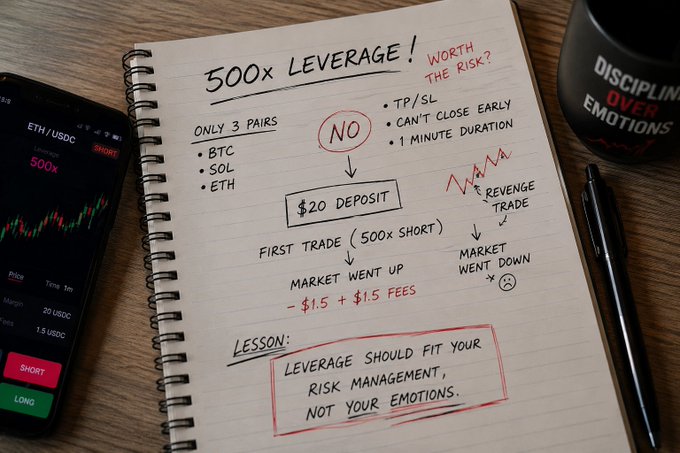 500x LEVERAGE!
WORTH
THE RISK?
ONLY 3 PAIRS
• BTC
• SOL
• ETH
NO
• TP/SL
• CAN'T CLOSE EARLY
• 1 MINUTE DURATION
$20 DEPOSIT
REVENGE
TRADE
FIRST TRADE (500x SHORT)
MARKET WENT UP
- $1.5 + $1.5 FEES
MARKET
WENT DOWN
LESSON:
LEVERAGE SHOULD FIT YOUR
RISK MANAGEMENT,
NOT YOUR EMOTIONS.
ETH / USDC
SHORT
Leverage
500x
Price
Time 1m
Margin
20 USDC
1.5 USDC
SHORT
LONG
DISCIPLIN
OVER
EMOTIONS